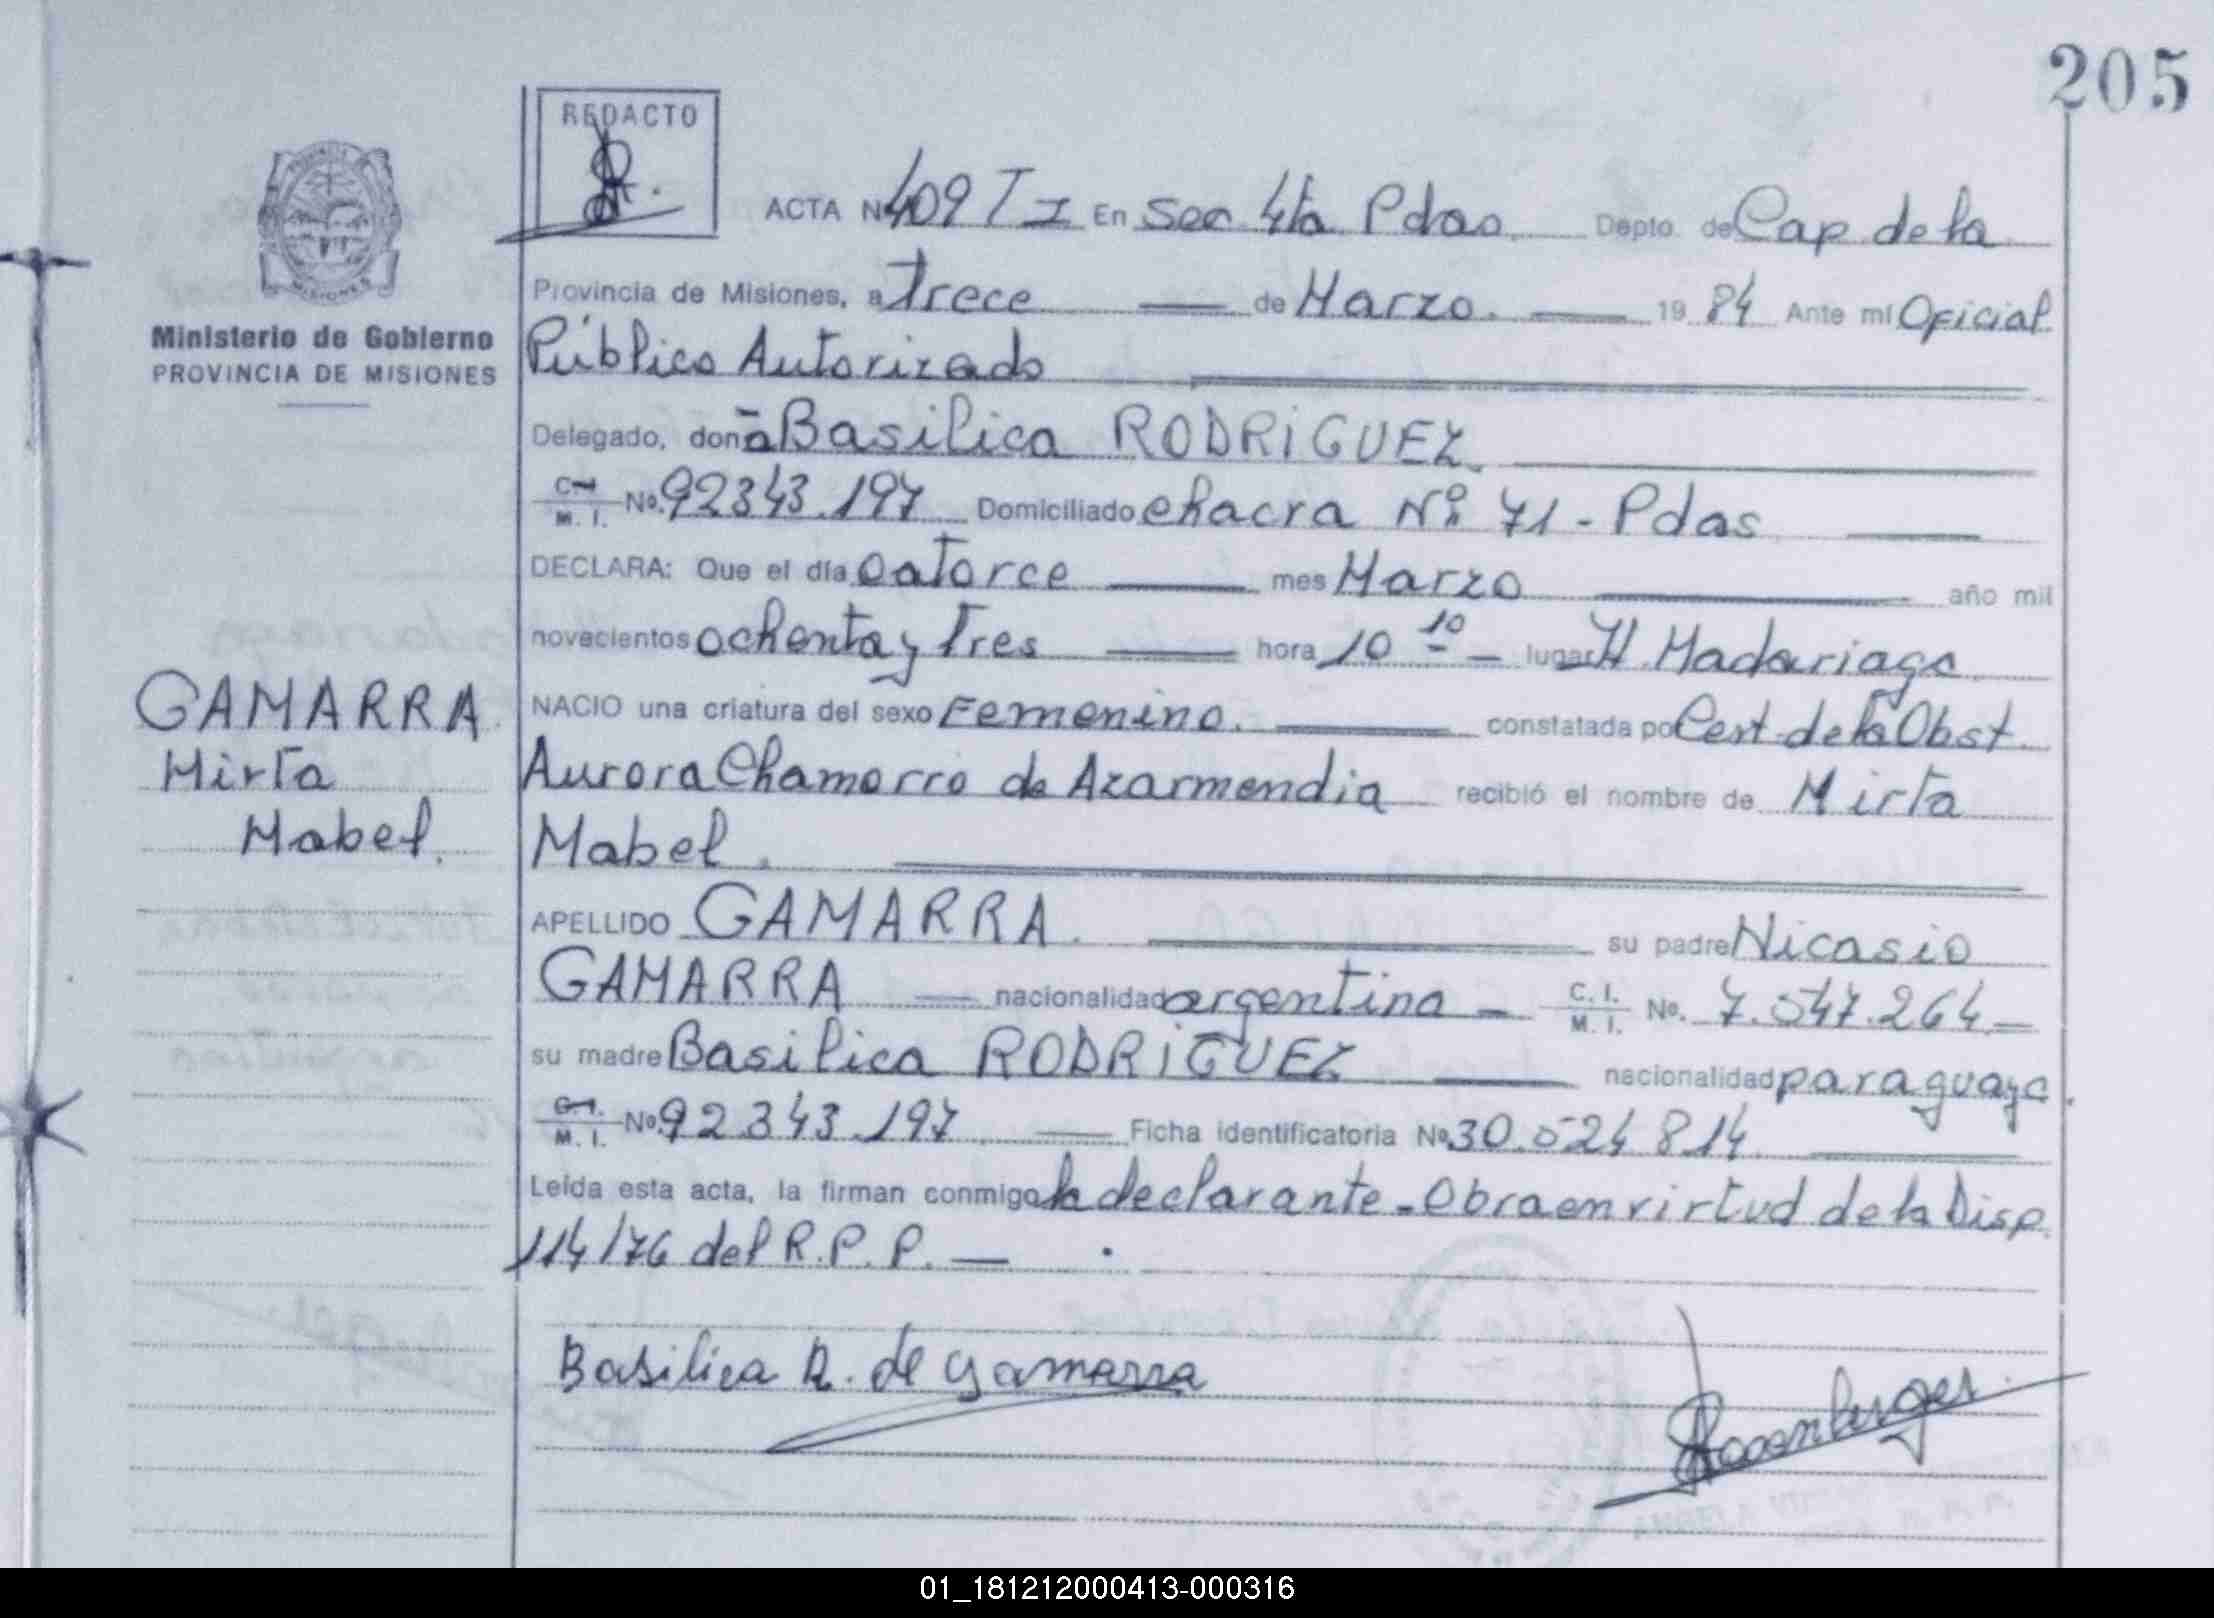 205
REDACTO
ACTA Nº 409 T I En Sec. 4ta Pdas. Depto. de Cap de la
Provincia de Misiones, a Trece de Marzo. 1984 Ante mí Oficial
Público Autorizado
Ministerio de Gobierno
PROVINCIA DE MISIONES
Delegado, doña Basilica RODRIGUEZ.
C.I. M. I. No. 92343.197 Domiciliado chacra Nº 71 - Pdas
DECLARA: Que el día catorce mes Marzo año mil
novecientos ochenta y Tres hora 10 10 - lugar H. Madariaga
NACIO una criatura del sexo Femenino. constatada por Cert. de la Obst.
Aurora Chamorro de Azarmendia recibió el nombre de Mirta
Mabel.
GAMARRA
Mirta
Mabel.
APELLIDO GAMARRA. su padre Nicasio
GAMARRA nacionalidad argentina - C. I. M. I. No. 7.547.264 -
su madre Basilica RODRIGUEZ nacionalidad paraguaya.
C. I. M. I. No. 92343.197 Ficha identificatoria No. 30.524.814
Leída esta acta, la firman conmigo la declarante - Obra en virtud de la Disp.
114/76 del R.P.P. -
Basilica R. de Gamarra
01_181212000413-000316